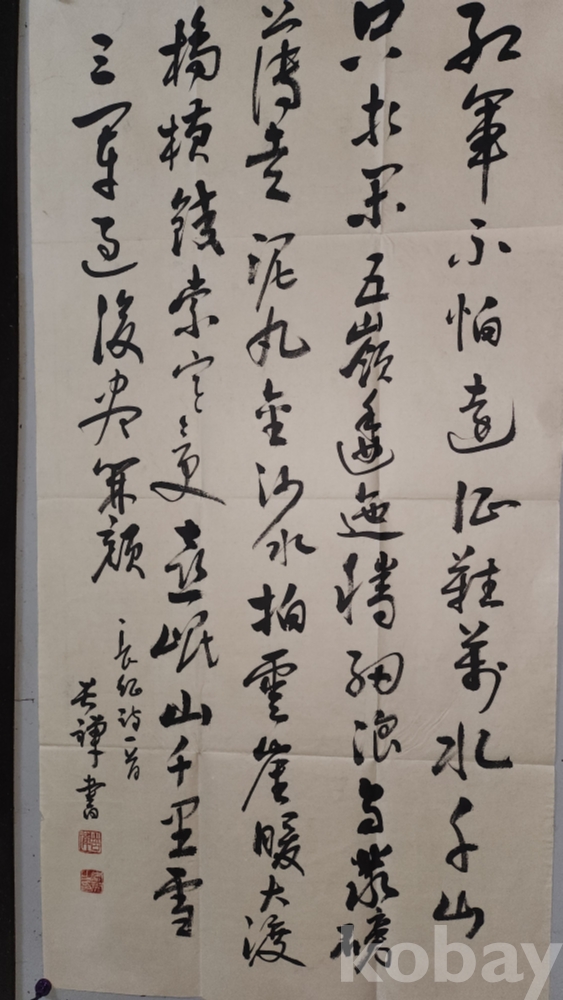 紅軍不怕遠征難萬水千山
只等閑五嶺逶迤騰細浪烏蒙磅
礴走泥丸金沙水拍雲崖暖大渡
橋橫鐵索寒更喜岷山千里雪
三軍過後盡開顏
長征詩一首
書
kobay